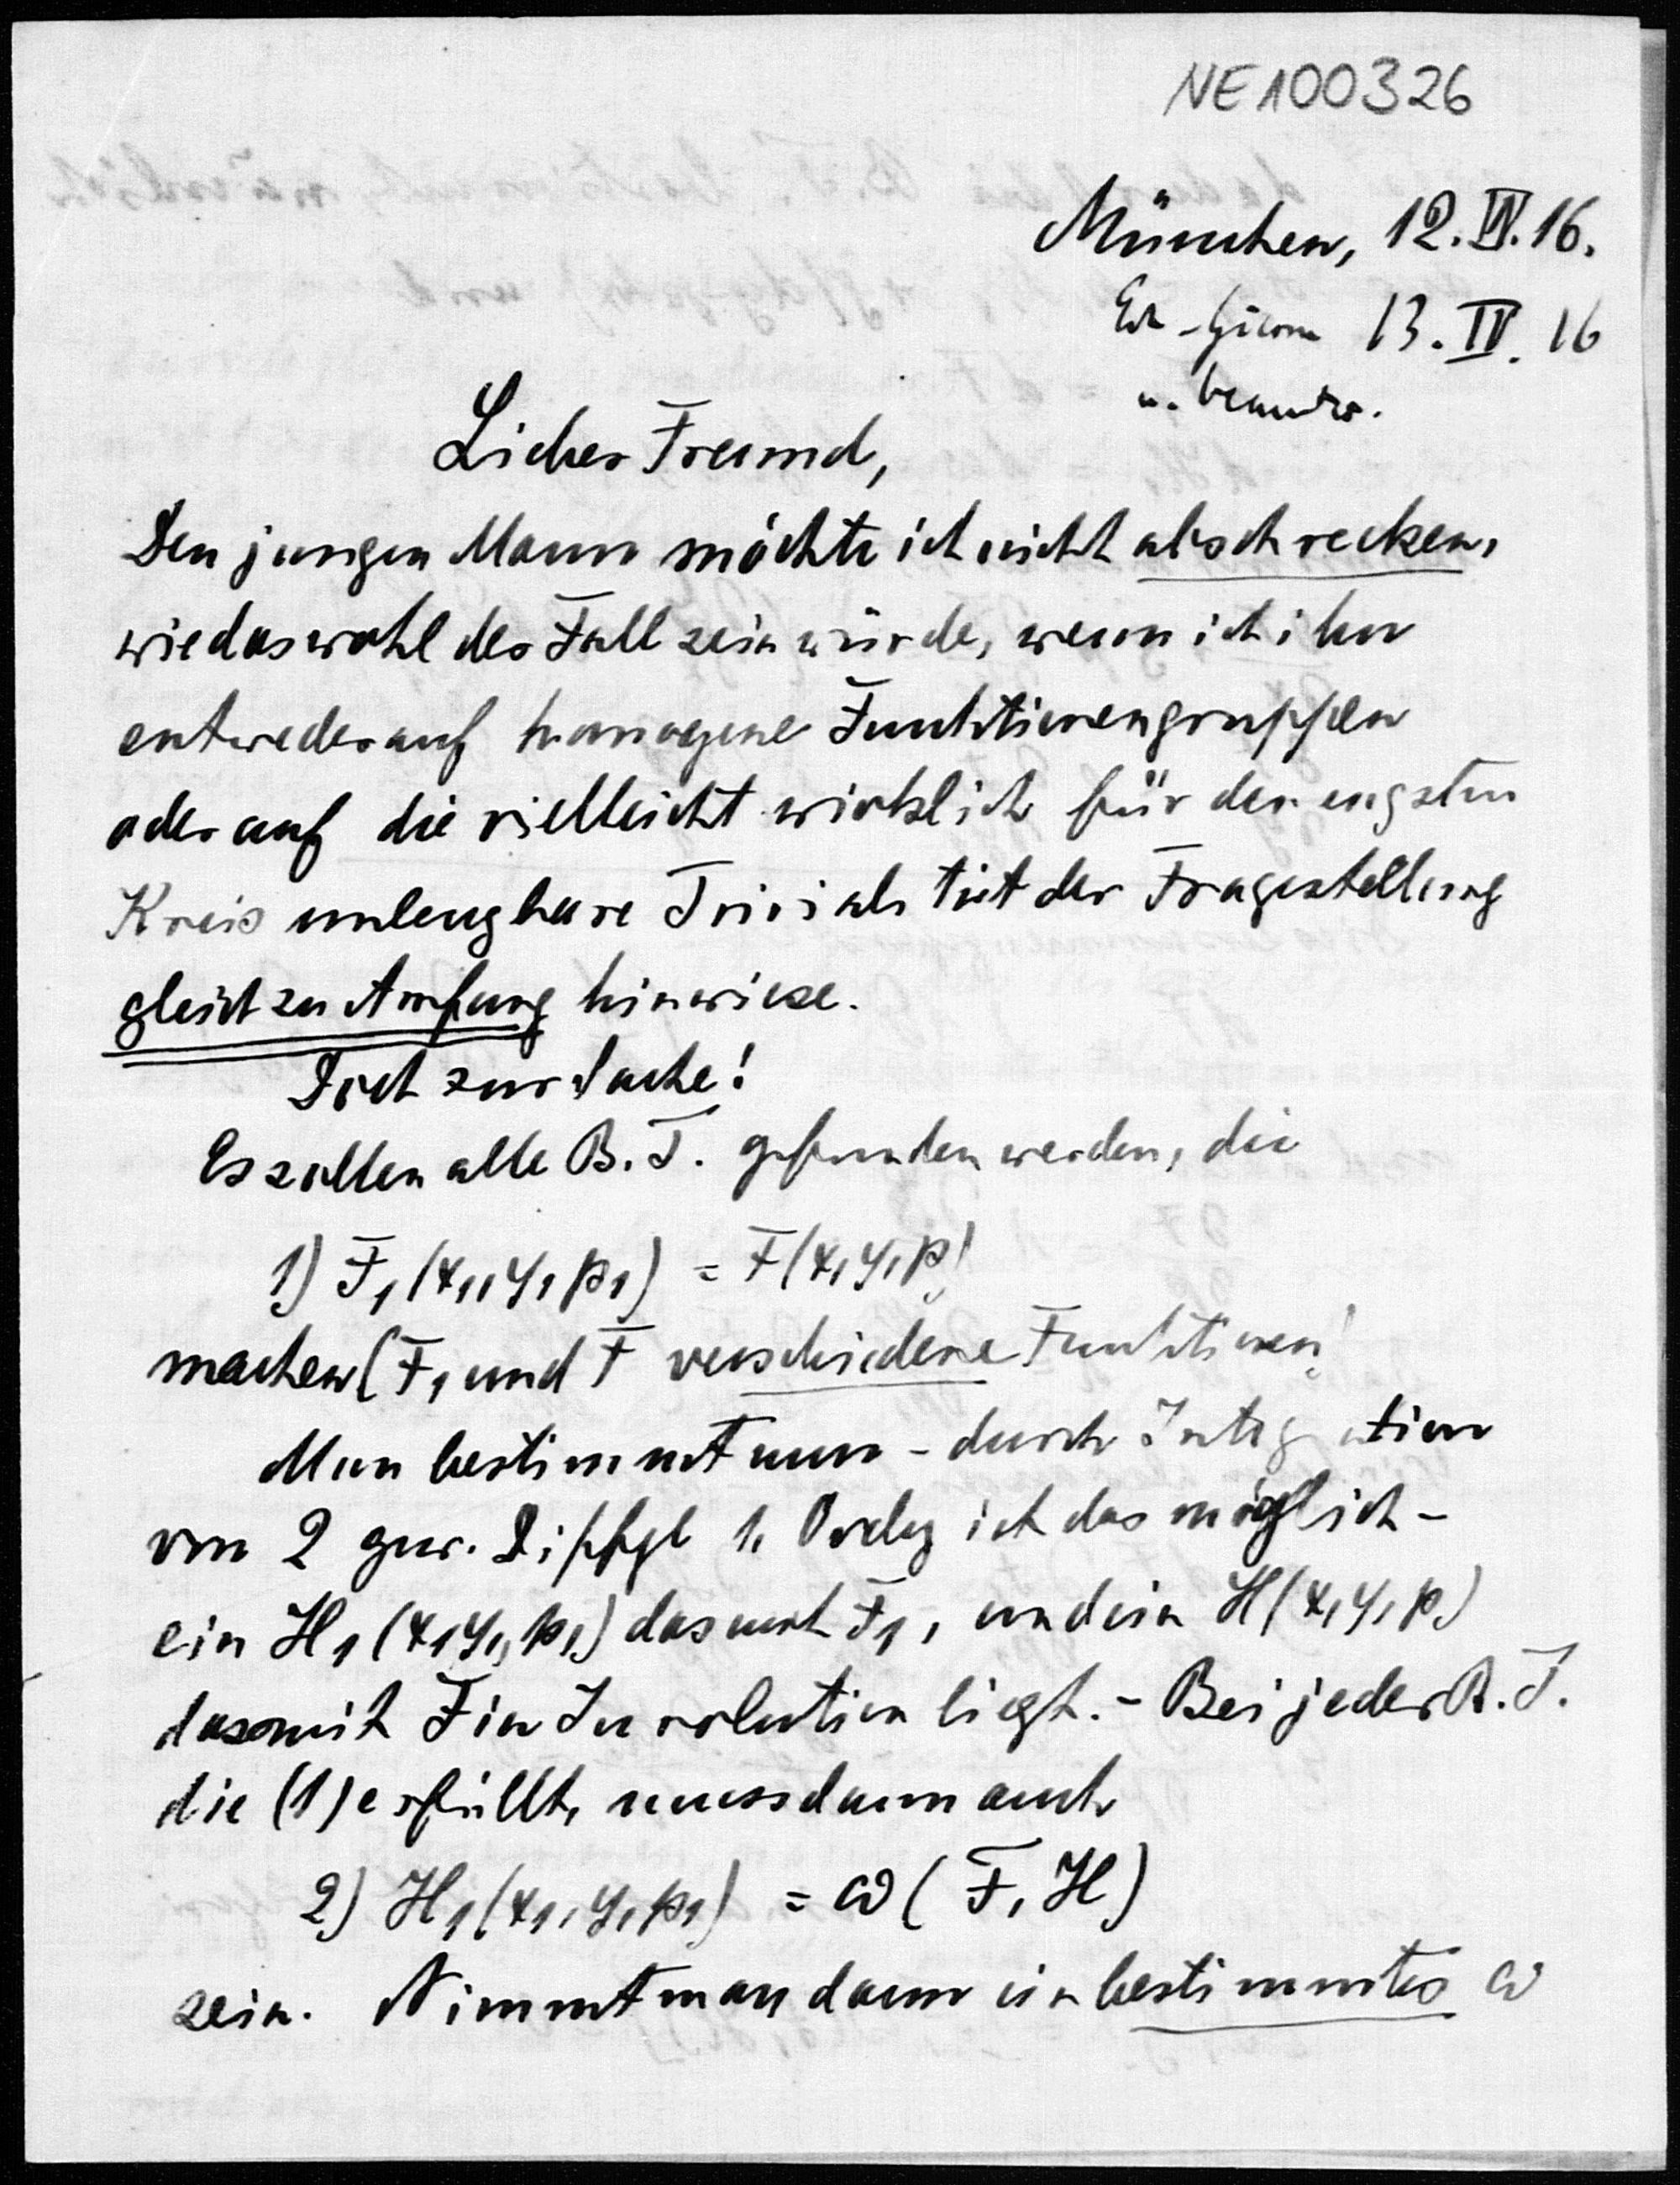 NE100326
München, 12.IV.16.
13.IV.16
u. beantw.
Lieber Freund,
Den jungen Mann möchte ich nicht abschrecken,
wie das wohl der Fall sein würde, wenn ich ihn
entweder auf homogene Funktionengruppen
oder auf die vielleicht wirklich für den engsten
Kreis unleugbare Trivialität der Fragestellung
gleich zu Anfang hinwiese.
Doch zur Sache!
Es sollen alle B.T. gefunden werden, die
1) F₁(x₁,y₁p₁) = F(x,y,p)
machen (F₁ und F verschiedene Funktionen)
Man bestimmt nun - durch Integration
von 2 gew. Diffgl 1. Ordg ist das möglich -
ein H₁(x₁y₁,p₁) das mit F₁, und ein H(x,y,p)
das mit F in Involution liegt. - Bei jeder B.T.
die (1) erfüllt, muss dann auch
2) H₁(x₁,y₁p₁) = ω(F,H)
sein. Nimmt man dann ein bestimmtes ω